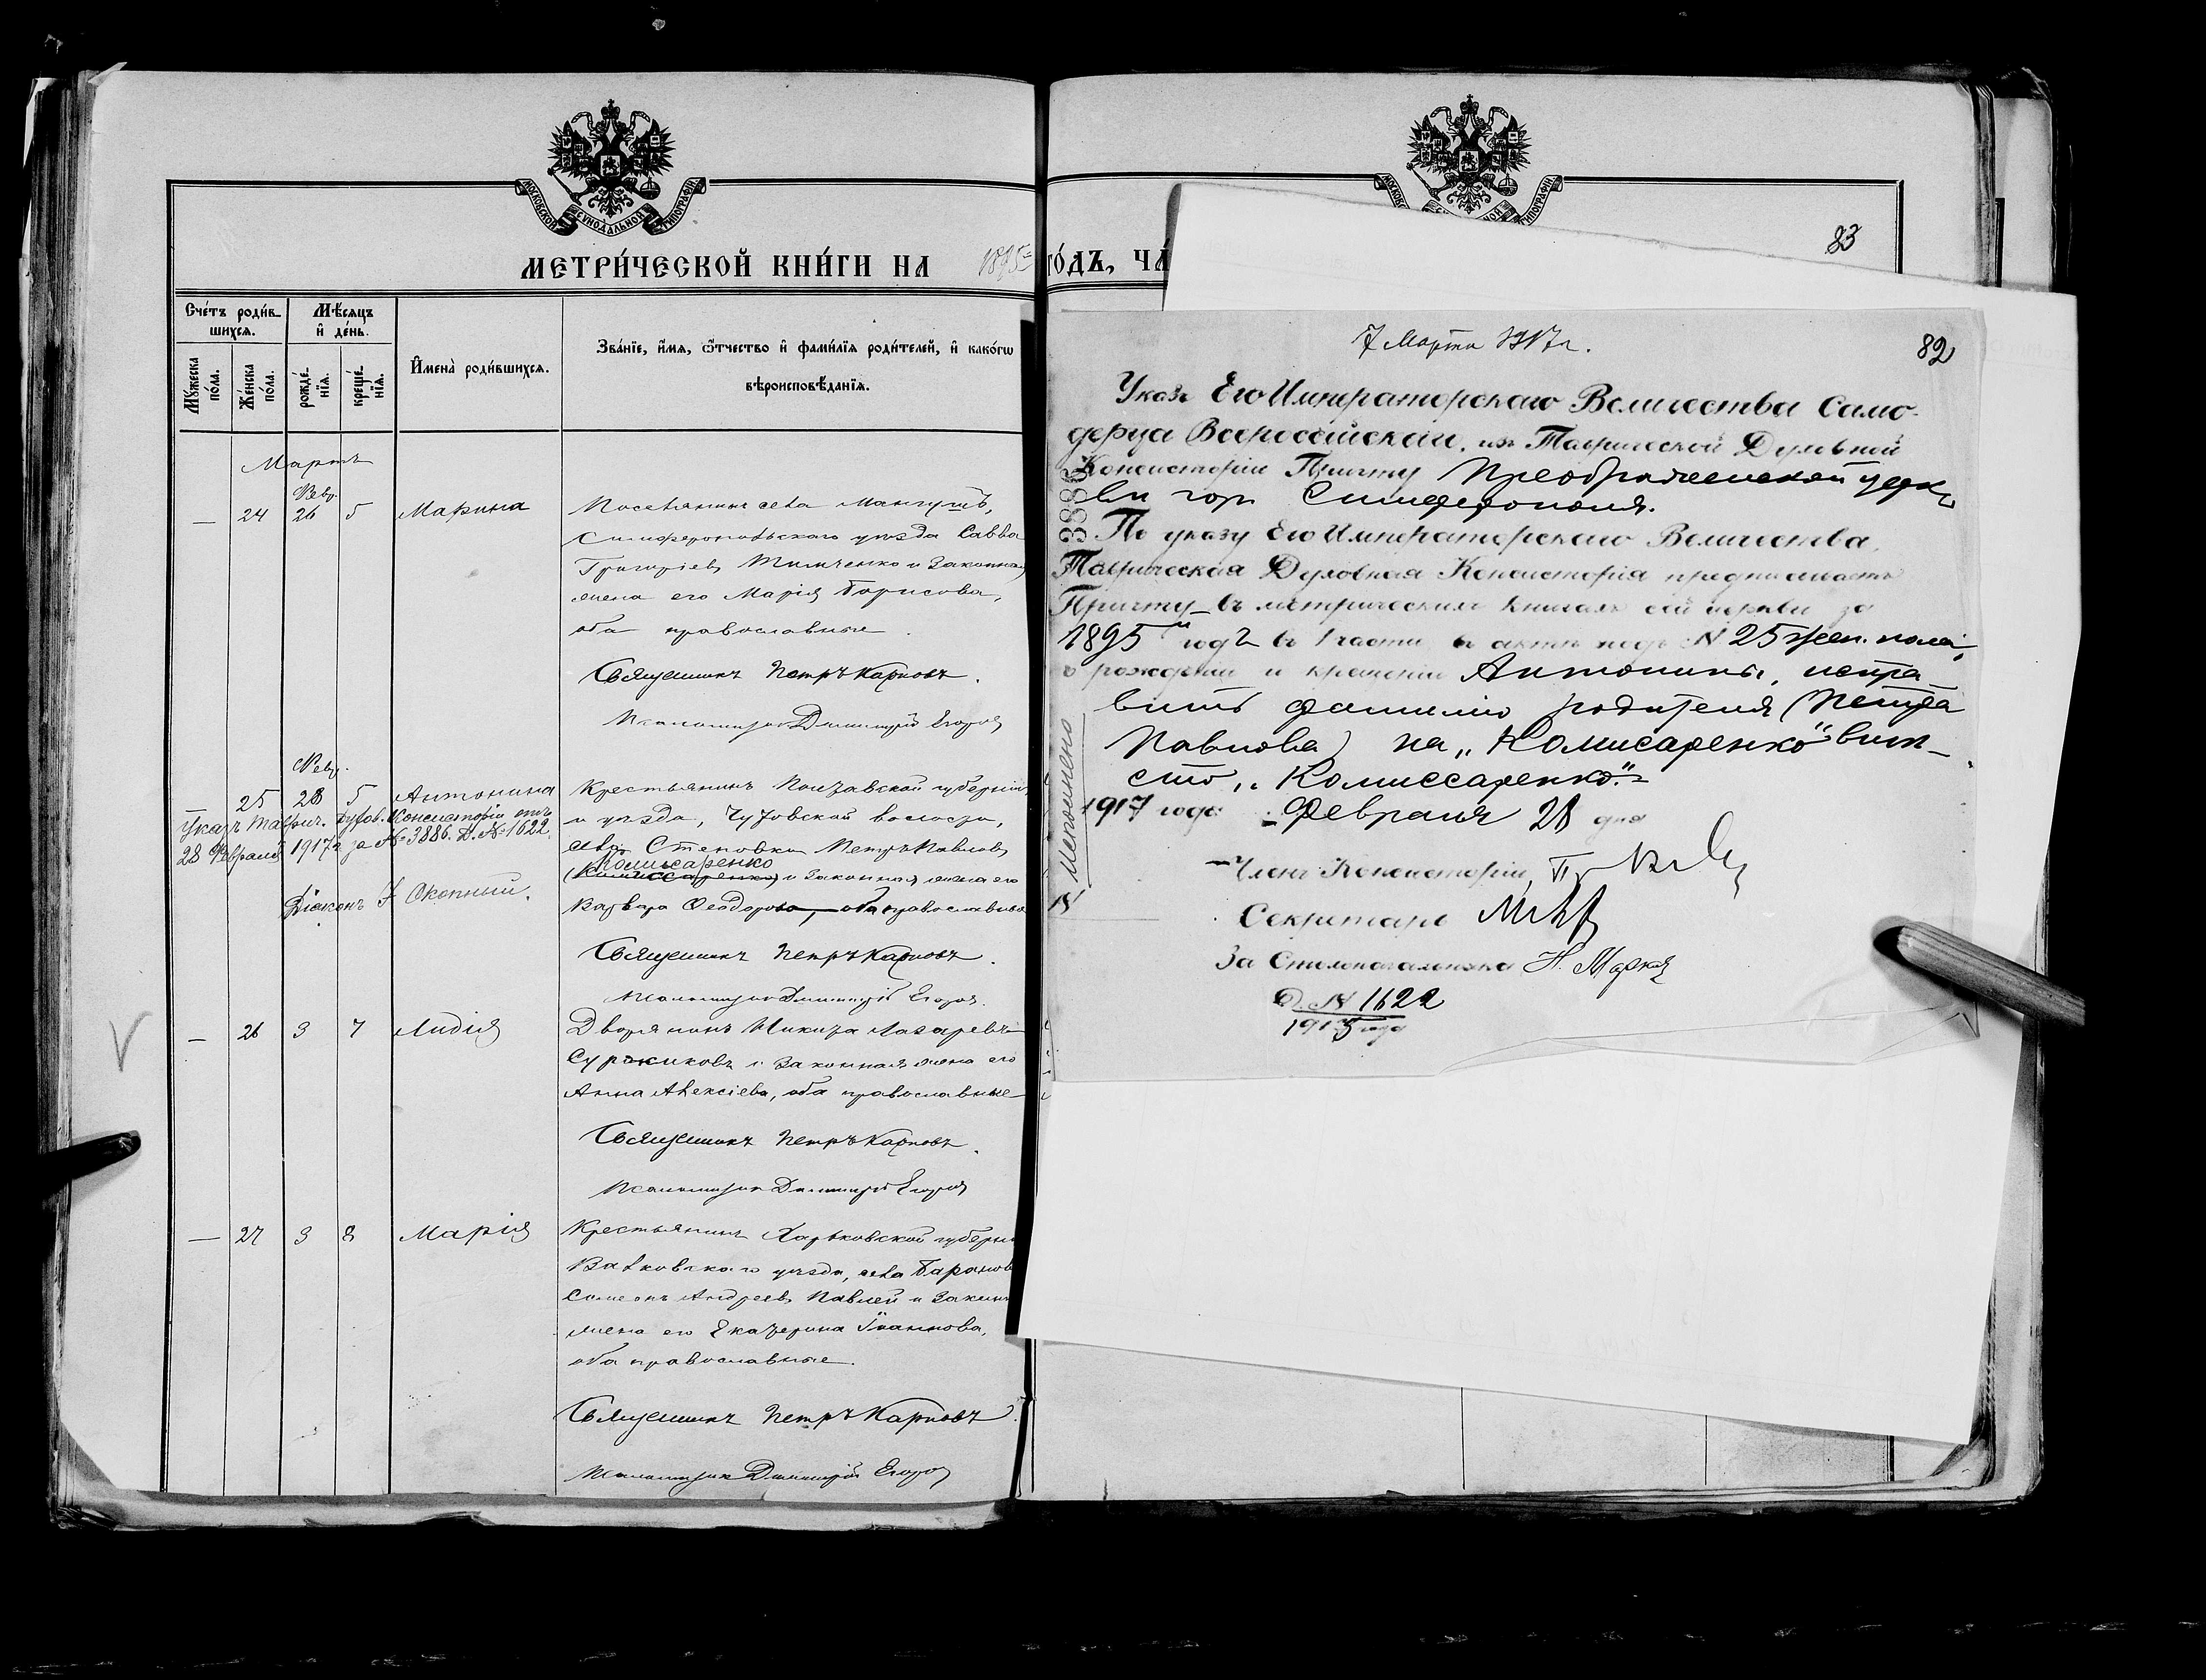 МОСКОВСКОЙ СѴНОДАЛЬНОЙ ТИПОГРАФІИ
МЕТРИ́ЧЕСКОЙ КНИ́ГИ НА 1895
Сче́тъ роди́в-
шихся.
Мѣ́сяцъ
и҆ де́нь.
Мꙋ́жеска
по́ла.
Же́нска
по́ла.
рожде́-
нїѧ.
креще́-
нїѧ.
И҆мена̀ роди́вшихсѧ.
Зва́нїе, и҆́мѧ, ѻ҆́тчество и҆ фами́лїѧ роди́телей, и҆ како́гѡ
вѣроисповѣ́данїѧ.
Мартъ
Февр.
— 24 26 5 Марина
Поселянинъ села Мангушъ,
Симферопольскаго уѣзда Савва
Григоріевъ Тимченко и законная
жена его Марія Борисова,
оба православные.
Священникъ Петръ Карповъ.
Псаломщикъ Димитрій Егоров
Февр.
25 28 5 Антонина
Указъ Таврич. Духов. Консисторіи отъ
28 Февраля 1917 г. за № 3886. Д. № 1622.
Діаконъ Окопный.
Крестьянинъ Полтавской губерніи
и уѣзда, Чутовской волости,
Степовки Петръ Павловъ
Комисаренко
(Комиссаренко) и законная жена его
Варвара Ѳеодорова, оба православные
Священникъ Петръ Карповъ.
Псаломщикъ Димитрій Егоров.
— 26 3 7 Лидія
Дворянинъ Никита Лазаревъ
Суржиковъ и законная жена его
Анна Алексіева, оба православные
Священникъ Петръ Карповъ.
Псаломщикъ Димитрій Егоров
— 27 3 8 Марія
Крестьянинъ Харьковской губерни
Валковскаго уѣзда, села
Симеонъ Андреевъ Павлей и закон
жена его Екатерина Іоаннова,
оба православные.
Священникъ Петръ Карповъ.
Псаломщикъ Димитрій Егоров
МОСКОВС ТИПОГРАФІИ
ГО́ДЪ, ЧА́
83
7 Марта 1917 г.
82
Указъ Его Императорскаго Величества Само-
держца Всероссійскаго, изъ Таврической Духовной
Консисторіи Причту Преображенской церк-
ви гор. Симферополя.
3886
По указу Его Императорскаго Величества,
Таврическая Духовная Консисторія предписываетъ
Причту въ метрическихъ книгахъ сей церкви за
1895 годъ въ 1 части въ актѣ подъ № 25 жен. пола,
о рожденіи и крещеніи Антонины, испра-
вить фамилію родителя (Петра
Павлова) на „Комисаренко“ вмѣ-
сто „Комиссаренко“.
1917 года Февраля 28 дня
Исполнено
№
Членъ Консисторіи,
Секретарь
За Столоначальника
Д. № 1622